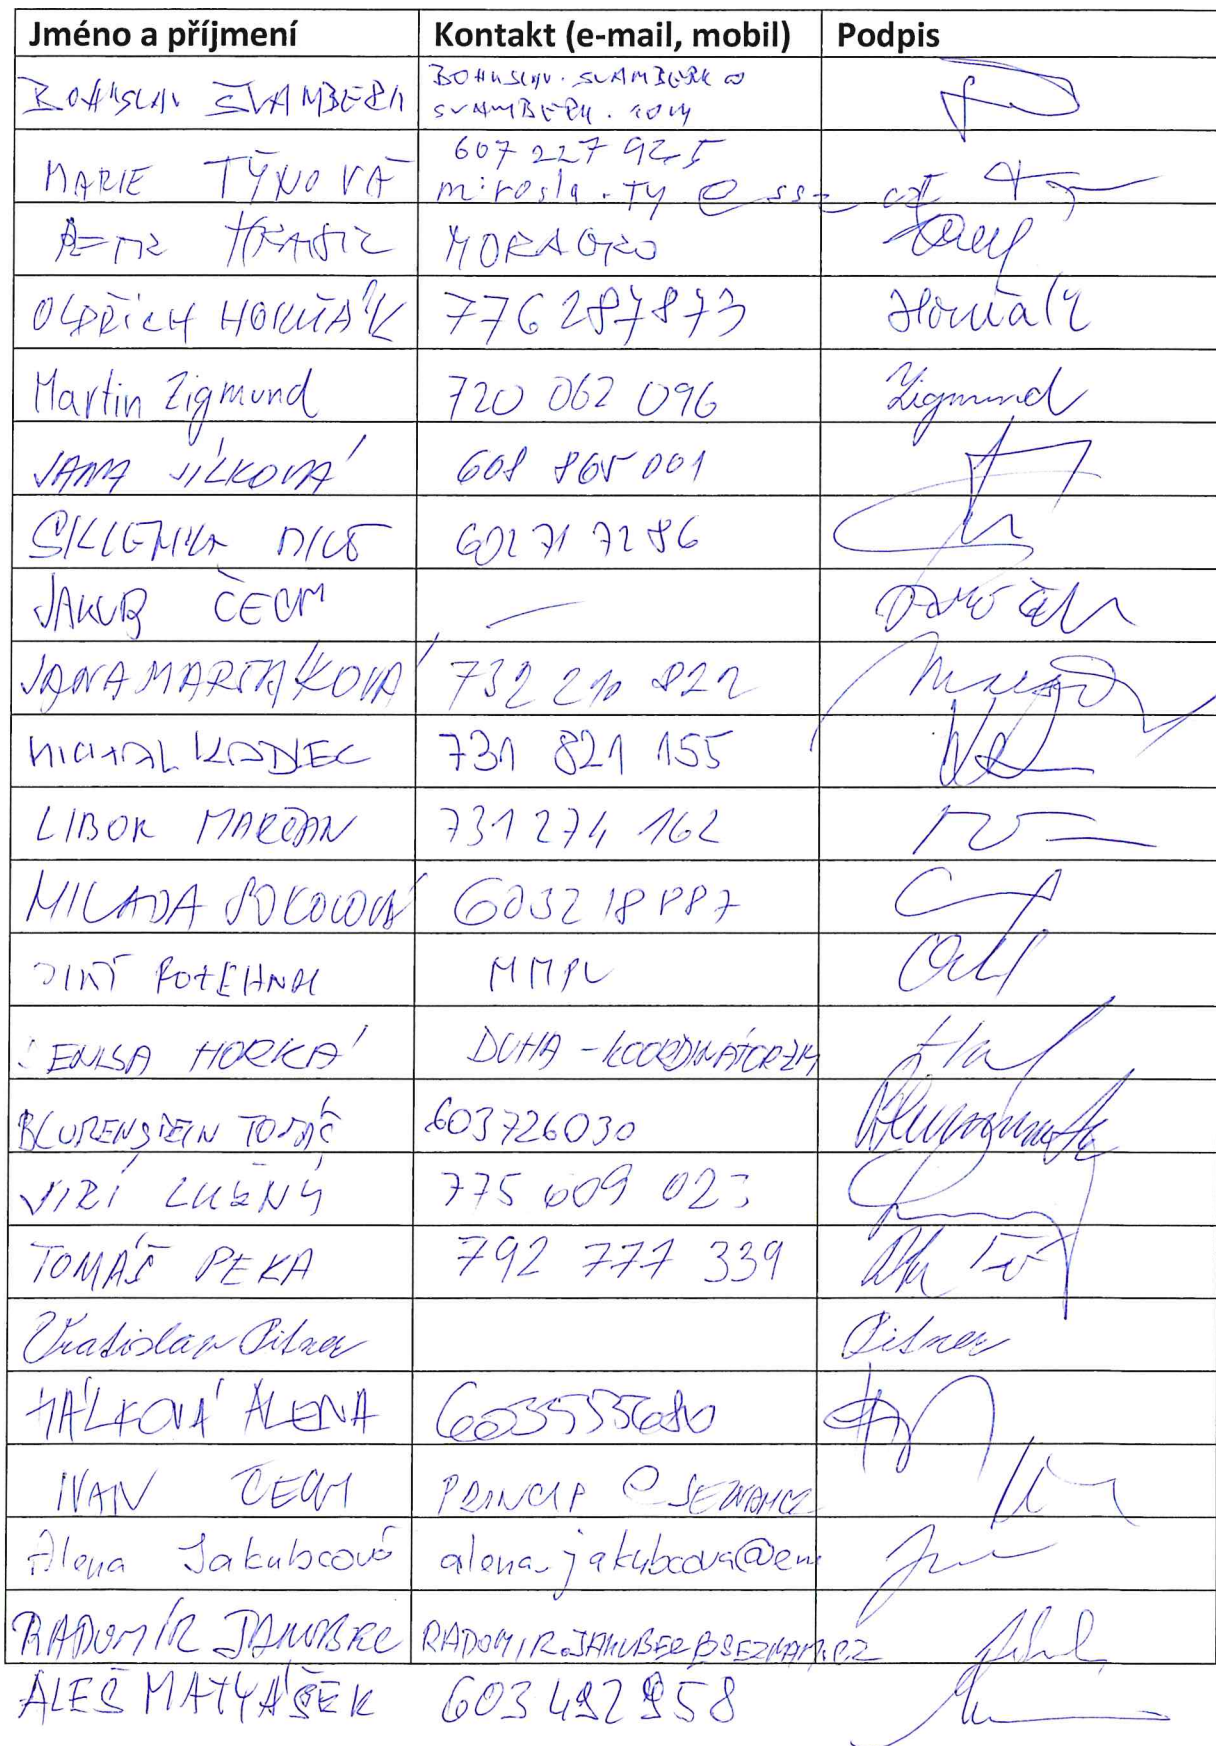 Jméno a příjmení Kontakt (e-mail, mobil) Podpis
BOHUSLAV ŠVAMBERK BOHUSLAV.SVAMBERK@
SVAMBERK.COM
MARIE TÝNOVÁ 607 227 925
HRABIC MORAGRO
OLDŘICH HORŇÁK 776 287873 Horňák
Martin Zigmund 720 062 096 Zigmund
JANA JÍLKOVÁ 608 865 001
602 71 72 86
JAKUB ČECH —
JANA MARTÁKOVÁ 732 210 822
MICHAL KADLEC 731 821 155
LIBOR MARČAN 731 274 162
MILADA SOKOLOVÁ 603218887
JIŘÍ POTĚHNAL MMPV
DENISA HORKÁ DUHA - KOORDINÁTOR ZM
TOMÁŠ 603726030
JIŘÍ LUŽNÝ 775 609 023
TOMÁŠ PEKA 792 777 339
Vratislav Pilner Pilner
HÁLKOVÁ ALENA 603553680
IVAN ČECH PRINCIP@SEZNAM.CZ
Alena Jakubcová alena.jakubcova@em
RADOMÍR JAKUBEC RADOMIR.JAKUBEC@SEZNAM.CZ
ALEŠ MATYÁŠEK 603 492 958